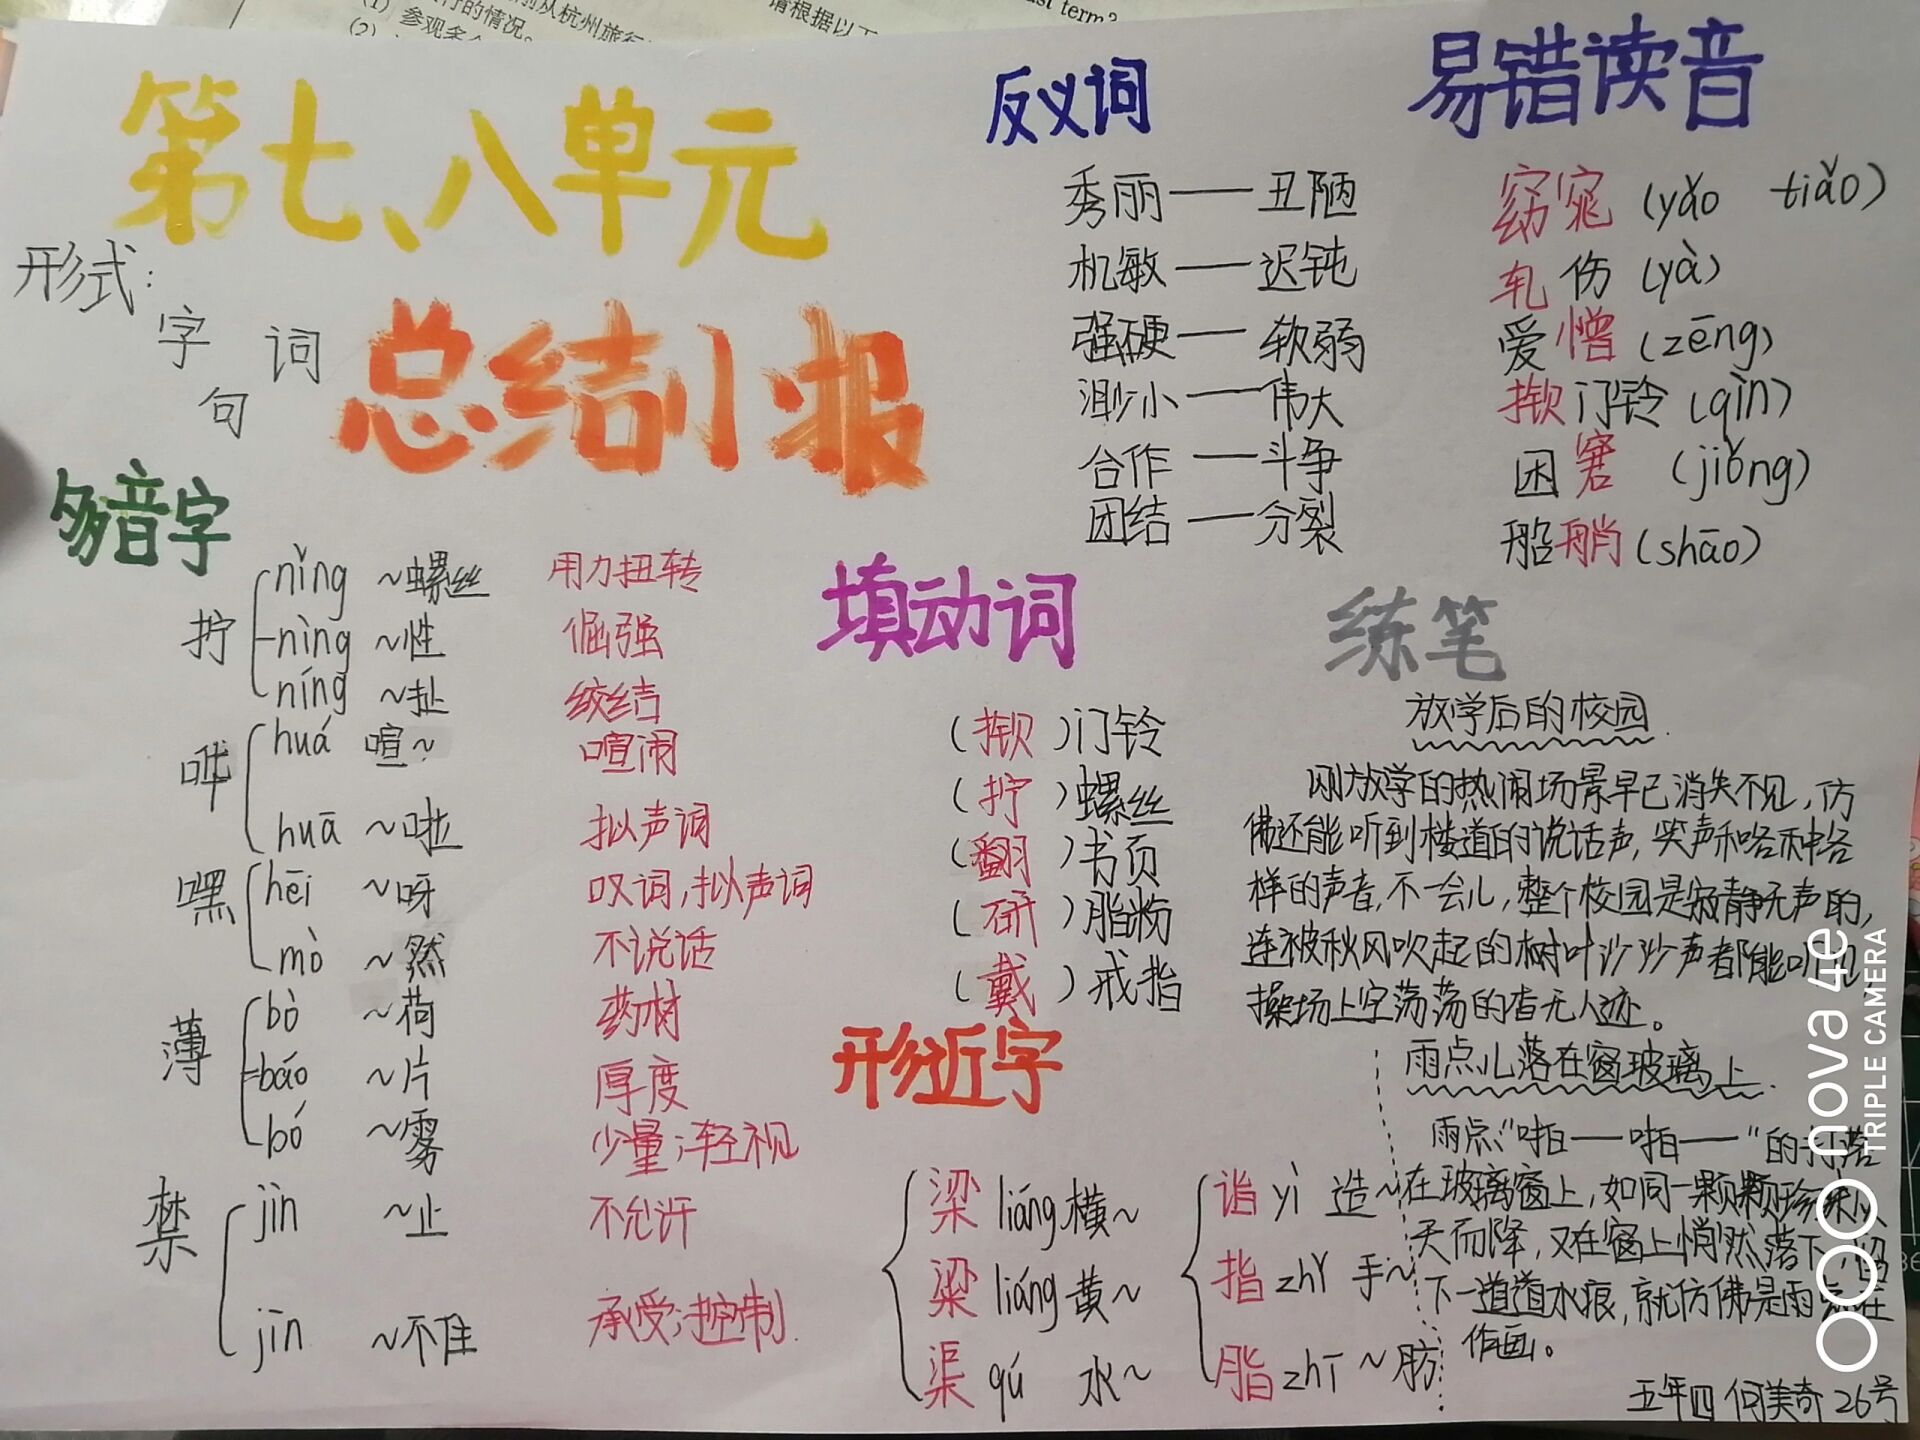 (1)参观多
(2)
行的情况。
前从杭州旅行
请根据以下
ast term?
第七、八单元
总结小报
形式：
字 词
句
多音字
拧 nǐng ~螺丝 用力扭转
nìng ~性 倔强
níng ~扯 绞结
哗 huá 喧~ 喧闹
huā ~啦 拟声词
嘿 hēi ~呀 叹词,拟声词
mò ~然 不说话
薄 bò ~荷 药材
báo ~片 厚度
bó ~雾 少量;轻视
禁 jìn ~止 不允许
jīn ~不住 承受;控制
反义词
秀丽——丑陋
机敏——迟钝
强硬——软弱
渺小——伟大
合作——斗争
团结——分裂
易错读音
窈窕(yǎo tiǎo)
轧伤(yà)
爱憎(zēng)
揿门铃(qìn)
困窘(jiǒng)
船艄(shāo)
填动词
(揿)门铃
(拧)螺丝
(翻)书页
(研)脂粉
(戴)戒指
形近字
梁 liáng 横~
粱 liáng 黄~
渠 qú 水~
诣 yì 造~
指 zhǐ 手~
脂 zhī ~肪
练笔
放学后的校园
刚放学的热闹场景早已消失不见,仿
佛还能听到楼道的说话声,笑声和各种各
样的声音,不一会儿,整个校园是寂静无声的,
连被秋风吹起的树叶沙沙声都能听见
操场上空荡荡的杳无人迹。
雨点儿落在窗玻璃上
雨点“啪——啪——”的打落
在玻璃窗上,如同一颗颗珍珠从
天而降,又在窗上悄然落下,留
下一道道水痕,就仿佛是雨点在
作画。
五年四 何美奇 26号
nova 4e
TRIPLE CAMERA